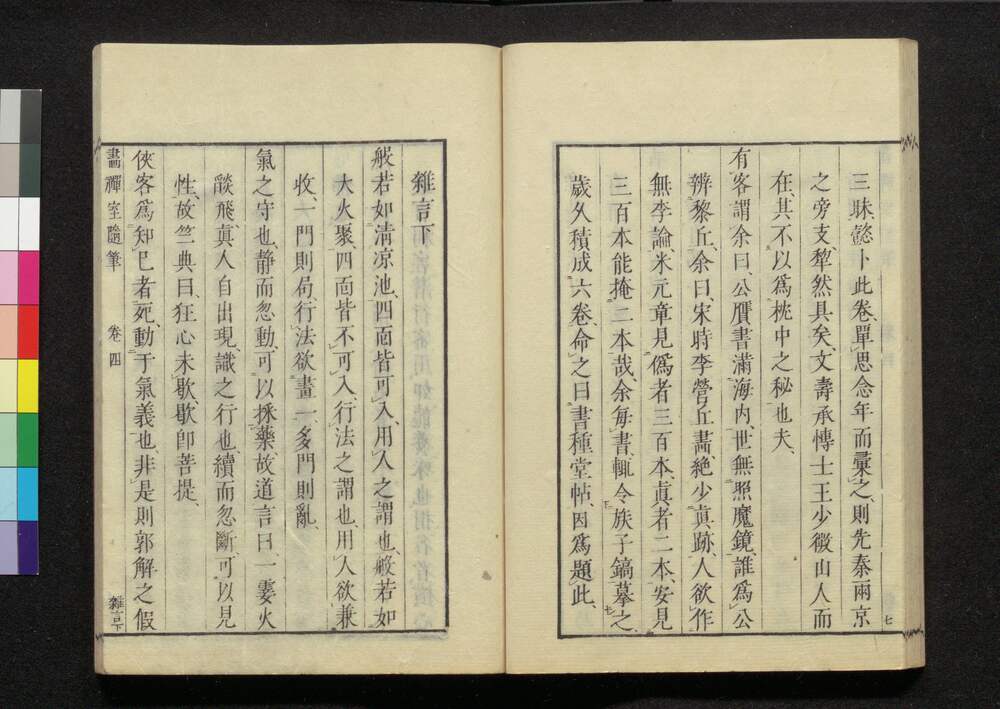 三昧、懿卜此卷、單思念年而彙之、則先秦兩京
之旁支、犂然具矣、文壽承博士王少微山人而
在、其不以爲枕中之秘也夫、
有客謂余曰、公贋書滿海内、世無照魔鏡、誰爲公
辨黎丘、余曰、宋時李營丘畫、絶少眞跡、人欲作
無李論、米元章見僞者三百本、眞者二本、安見
三百本能掩二本哉、余毎書、輒令族子鎬摹之、
歲久積成六卷、命之曰書種堂帖、因爲題此、
七
雜言下
般若如清凉池、四面皆可入、用人之謂也、般若如
大火聚、四面皆不可入、行法之謂也、用人欲兼
收、一門則局、行法欲畫一、多門則亂、
氣之守也、静而忽動、可以採藥、故道言曰、一霎火
燄飛、眞人自出現、識之行也、續而忽斷、可以見
性、故竺典曰、狂心未歇、歇卽菩提、
俠客爲知己者死、動于氣義也、非是則郭解之假
畫禪室隨筆 卷四 雜言下